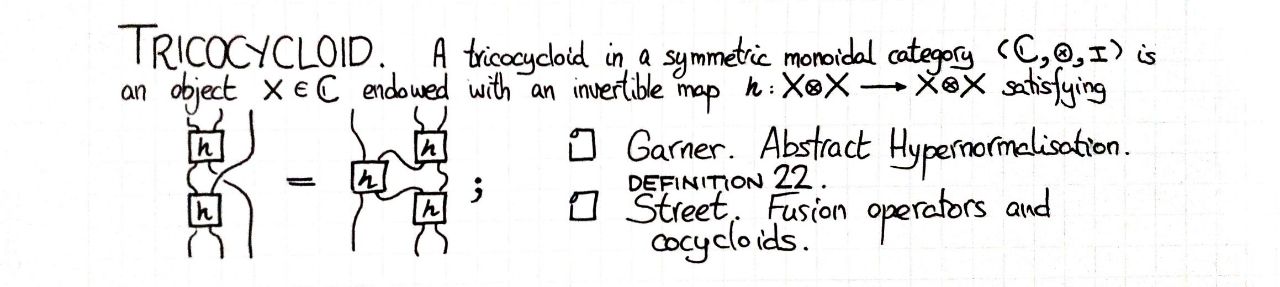 TRICOCYCLOID. A tricocycloid in a symmetric monoidal category (ℂ,⊗,I) is
an object X ∈ ℂ endowed with an invertible map h : X⊗X ⟶ X⊗X satisfying
h h = h h h ;
□ Garner. Abstract Hypernormalisation.
DEFINITION 22.
□ Street. Fusion operators and
cocycloids.